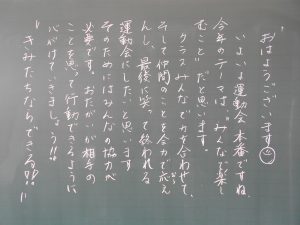 "おはようございます☺
いよいよ運動会本番ですね
今年のテーマは"みんなで楽し
むこと"だと思います。
クラスみんなで力を合わせて、
そして仲間のことを全力で応え
んし、最後に笑って終われる
運動会にしたいと思います
そのためにはみんなの協力が
必要です。おたがいが相手の
ことを思って行動できるように
心がけていきましょう!!
きみたちならできる!?!"